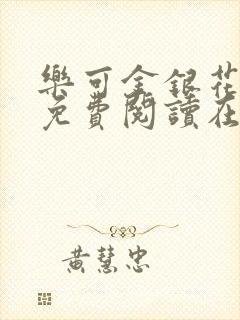 樂可金銀花
免費閱讀在
黃慧忠